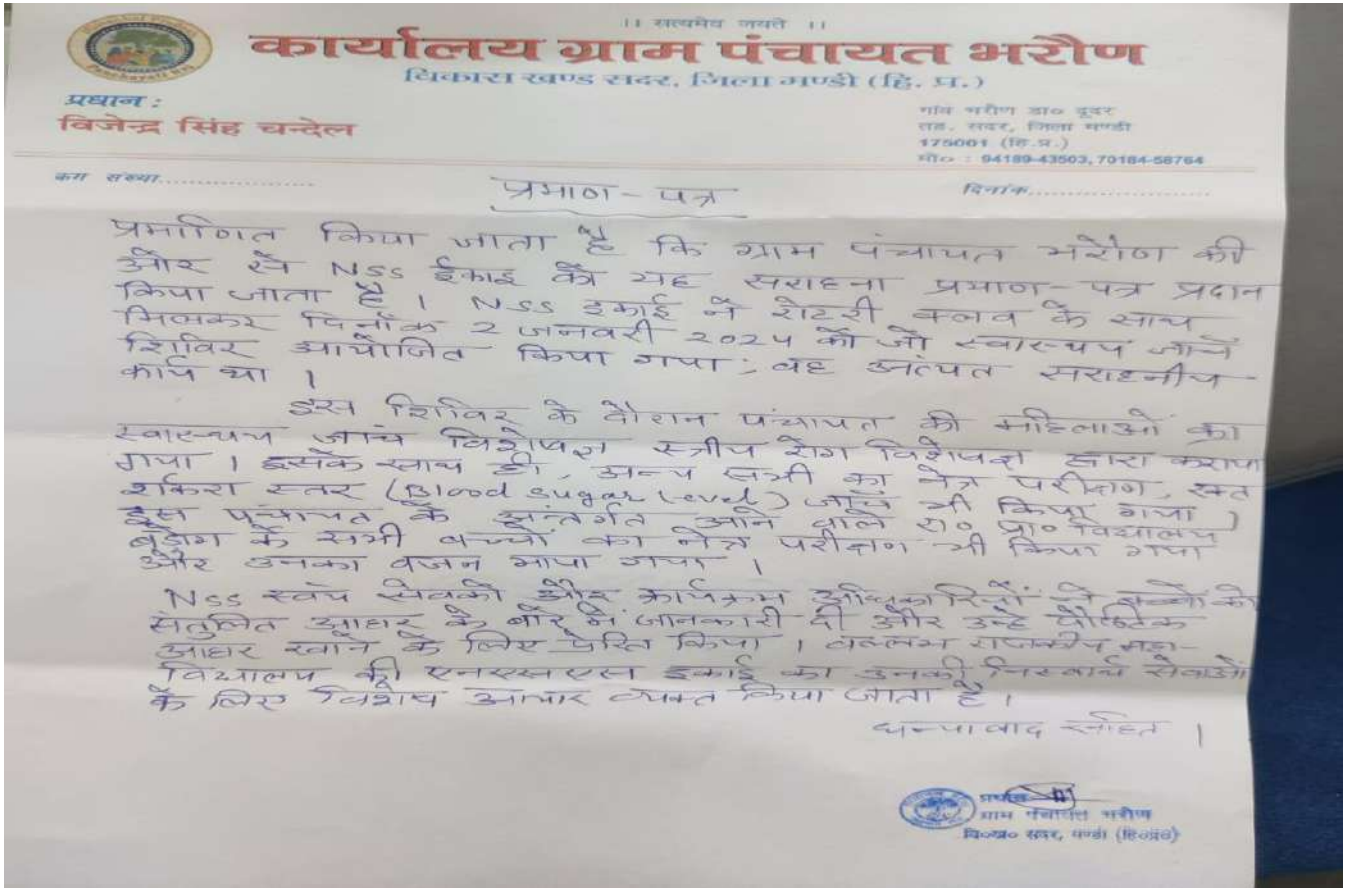 ।। सत्यमेव जयते ।।
Himachal Pradesh
Panchayati Raj
कार्यालय ग्राम पंचायत भरौण
विकास खण्ड सदर, जिला मण्डी (हि. प्र.)
प्रधान :
विजेन्द्र सिंह चन्देल
गांव भरौण डा० दूदर
तह. सदर, जिला मण्डी
175001 (हि.प्र.)
मो० : 94189-43503, 70184-58764
क्रम संख्या....................
दिनांक........................
प्रमाण-पत्र
प्रमाणित किया जाता है कि ग्राम पंचायत भरौण की
और से NSS ईकाई को यह सराहना प्रमाण-पत्र प्रदान
किया जाता है । NSS इकाई ने रोटरी क्लव के साथ
मिलकर दिनाँक 2 जनवरी 2024 को जो स्वास्थय जाँच
शिविर आयोजित किया गया; वह अंत्यत सराहनीय
कार्य था ।
इस शिविर के दौरान पंचायत की महिलाओं का
स्वास्थय जांच विशेषज्ञ स्त्रीय रोग विशेषज्ञ द्वारा कराया
गया । इसके साथ ही, अन्य सभी का नेत्र परीक्षण, रक्त
शर्करा स्तर (Blood sugar level) जाँच भी किया गया ।
इस पंचायत के अन्तर्गत आने वाले रा० प्रा० विद्यालय
के सभी बच्चों का नेत्र परीक्षण भी किया गया
और उनका वजन मापा गया ।
NSS स्वंय सेवकों और कार्यक्रम अधिकारियों ने बच्चों को
संतुलित आहार के बारे में जानकारी दी और उन्हे पौष्टिक
आहार खाने के लिए प्रेरित किया । वल्लभ राजकीय महा-
विद्यालय की एनएसएस इकाई का उनकी निस्वार्थ सेवाओं
के लिए विशेष आभार व्यक्त किया जाता है ।
धन्यावाद सहित ।
प्रधान
ग्राम पंचायत भरौण
वि०ख० सदर, मण्डी (हि०प्र०)